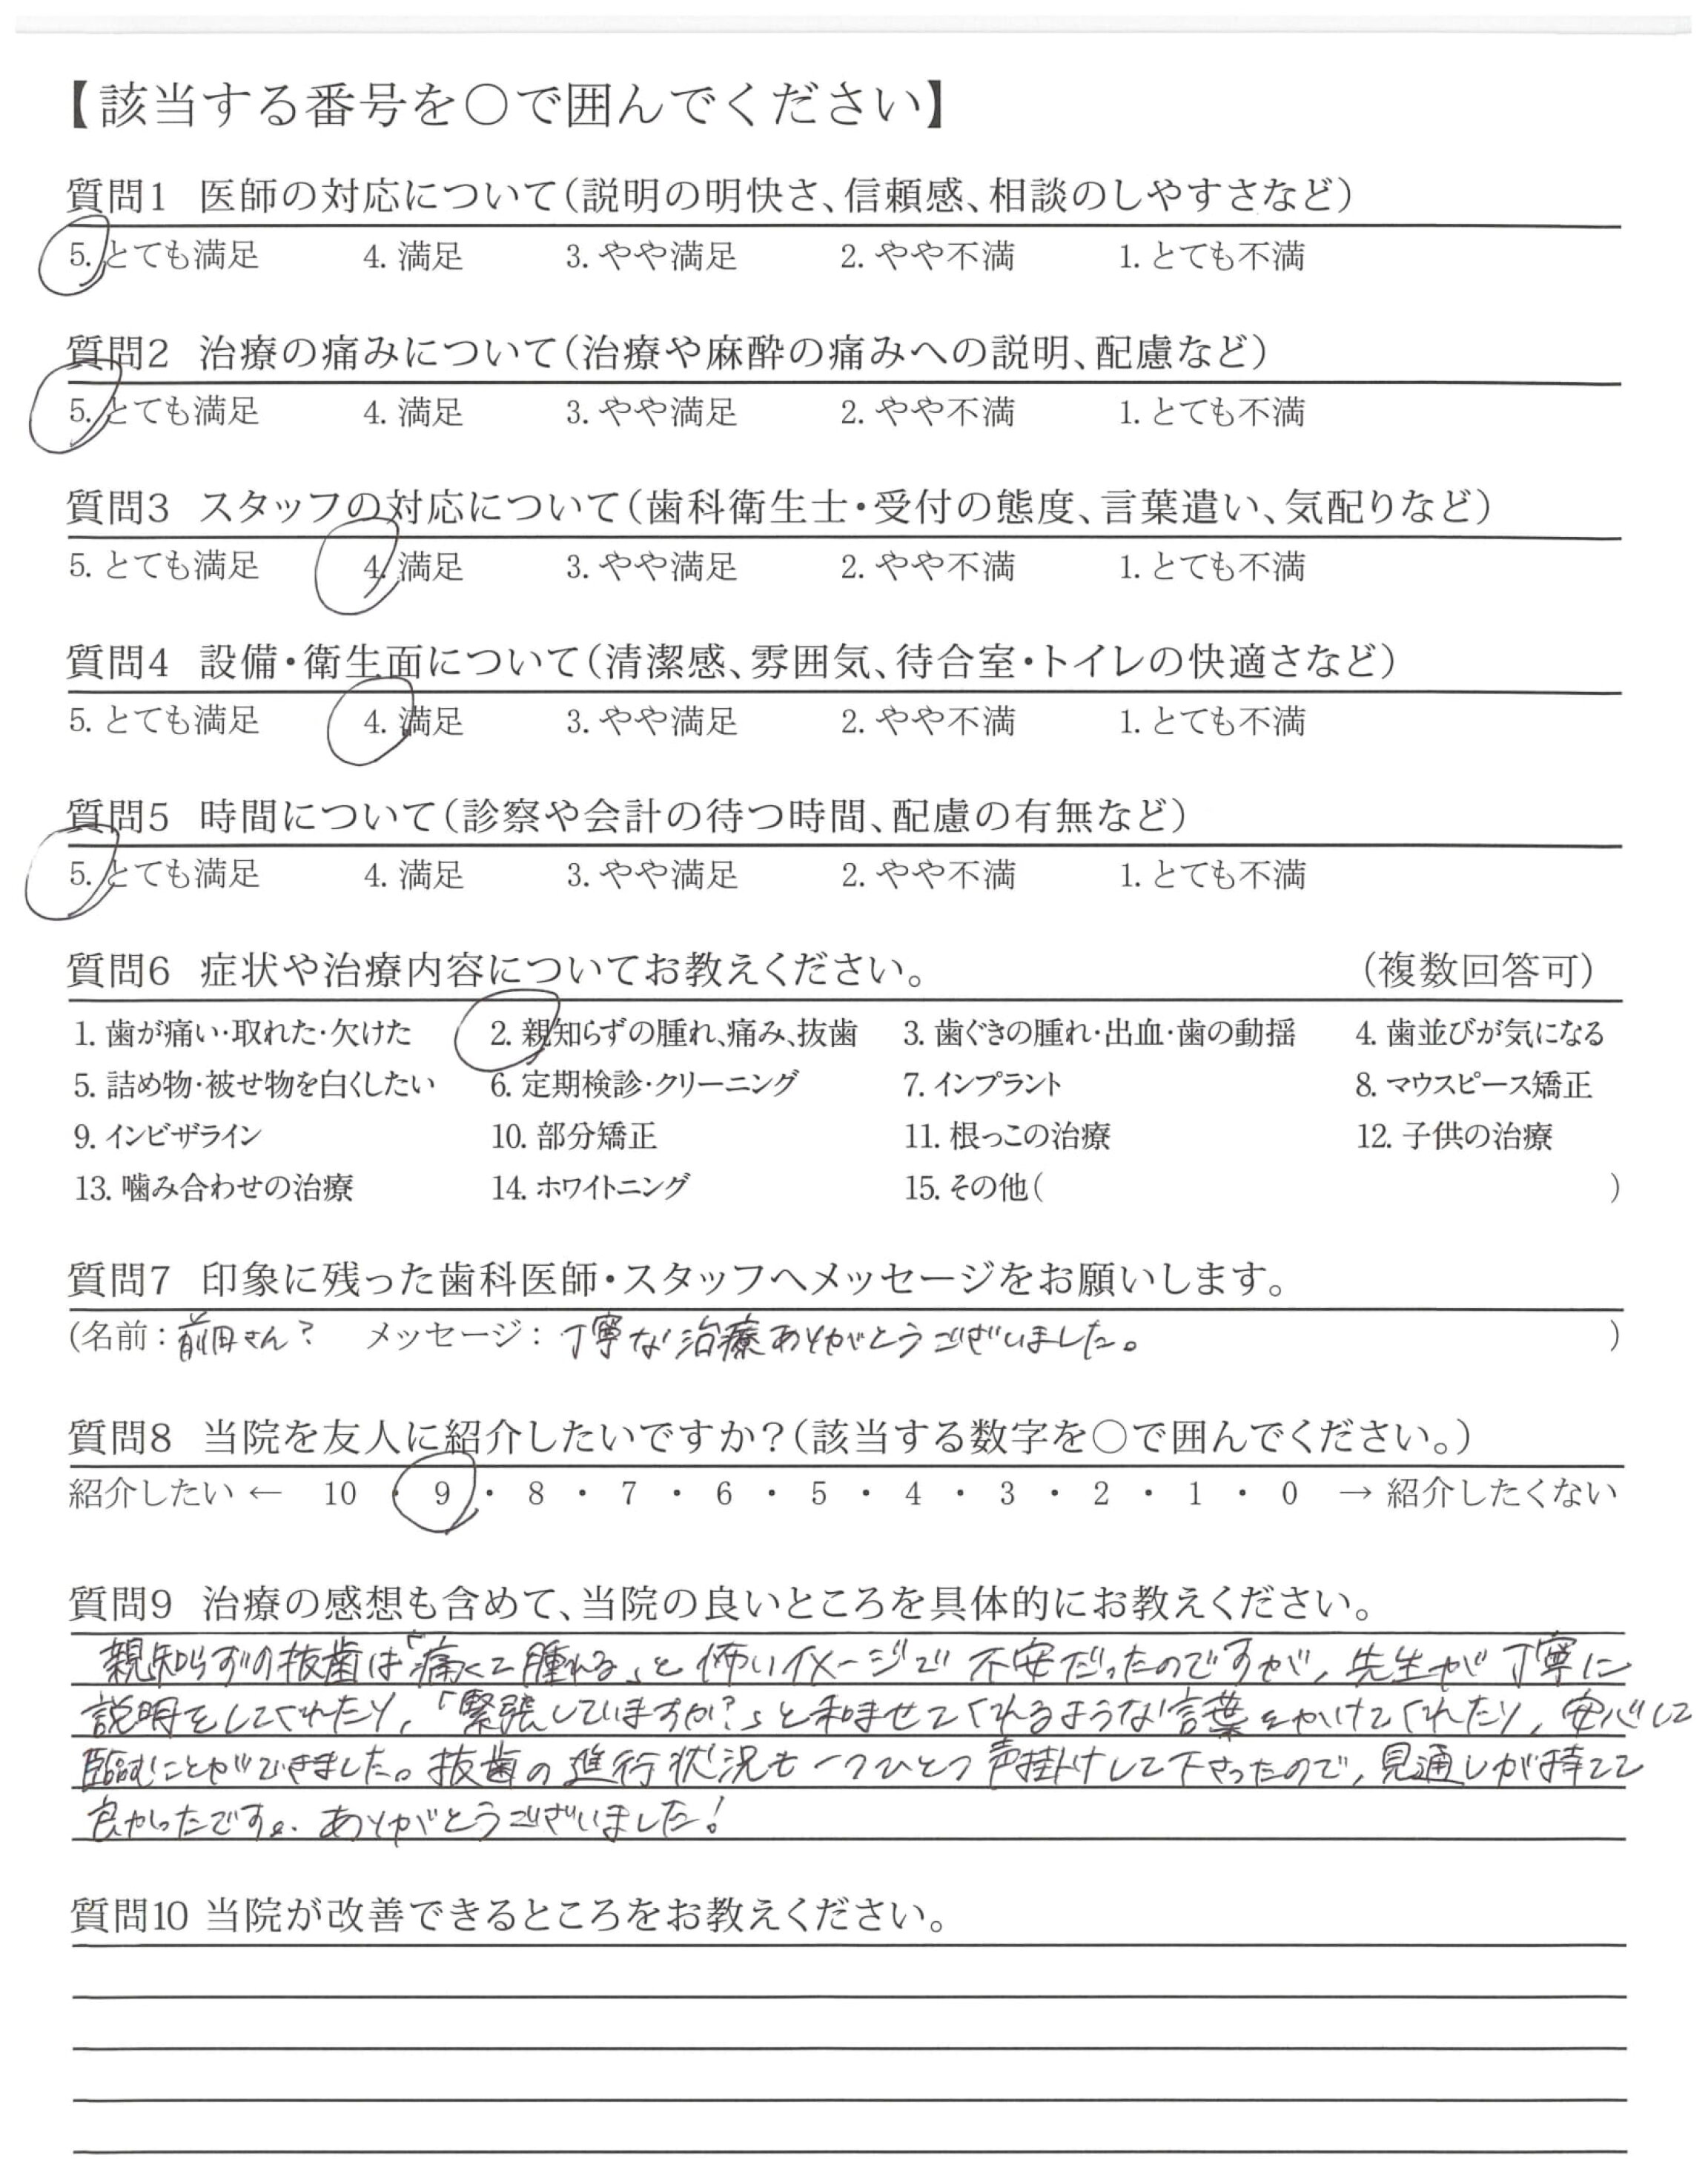 【該当する番号を○で囲んでください】
質問1 医師の対応について(説明の明快さ、信頼感、相談のしやすさなど)
5. とても満足 4. 満足 3. やや満足 2. やや不満 1. とても不満
質問2 治療の痛みについて(治療や麻酔の痛みへの説明、配慮など)
5. とても満足 4. 満足 3. やや満足 2. やや不満 1. とても不満
質問3 スタッフの対応について(歯科衛生士・受付の態度、言葉遣い、気配りなど)
5. とても満足 4. 満足 3. やや満足 2. やや不満 1. とても不満
質問4 設備・衛生面について(清潔感、雰囲気、待合室・トイレの快適さなど)
5. とても満足 4. 満足 3. やや満足 2. やや不満 1. とても不満
質問5 時間について(診察や会計の待つ時間、配慮の有無など)
5. とても満足 4. 満足 3. やや満足 2. やや不満 1. とても不満
質問6 症状や治療内容についてお教えください。 (複数回答可)
1. 歯が痛い・取れた・欠けた 2. 親知らずの腫れ、痛み、抜歯 3. 歯ぐきの腫れ・出血・歯の動揺 4. 歯並びが気になる
5. 詰め物・被せ物を白くしたい 6. 定期検診・クリーニング 7. インプラント 8. マウスピース矯正
9. インビザライン 10. 部分矯正 11. 根っこの治療 12. 子供の治療
13. 噛み合わせの治療 14. ホワイトニング 15. その他( )
質問7 印象に残った歯科医師・スタッフへメッセージをお願いします。
(名前:前田さん? メッセージ:丁寧な治療ありがとうございました。 )
質問8 当院を友人に紹介したいですか?(該当する数字を○で囲んでください。)
紹介したい ← 10 ・ 9 ・ 8 ・ 7 ・ 6 ・ 5 ・ 4 ・ 3 ・ 2 ・ 1 ・ 0 → 紹介したくない
質問9 治療の感想も含めて、当院の良いところを具体的にお教えください。
親知らずの抜歯は「痛くて腫れる」と怖いイメージで不安だったのですが、先生が丁寧に
説明をしてくれたり、「緊張していますか?」と和ませてくれるような言葉をかけてくれたり、安心して
臨むことができました。抜歯の進行状況も一つひとつ声掛けして下さったので、見通しが持てて
良かったです。ありがとうございました!
質問10 当院が改善できるところをお教えください。